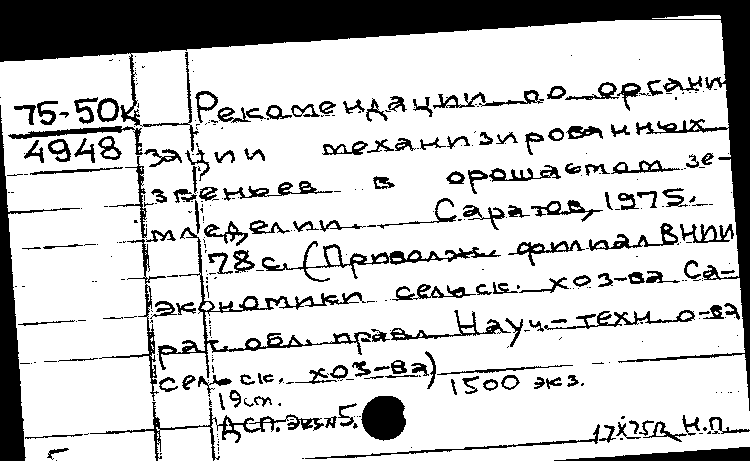 75-50к
4948
Рекомендации по органи-
зации механизированных
звеньев в орошаемом зе-
мледелии. Саратов, 1975.
78 с. (Приволж. филиал ВНИИ
экономики сельск. хоз-ва Са-
рат. обл. правл. Науч.-техн. о-ва
сельск. хоз-ва)
19 см. 1500 экз.
ДСП. Экз N5.
Н.П.